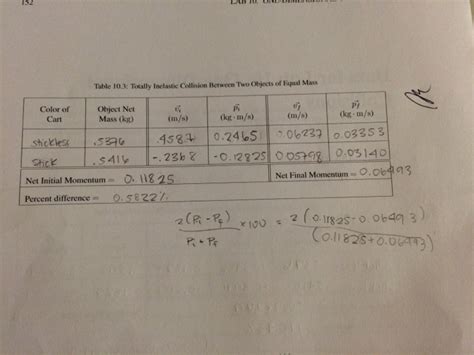 152
LAB 10.
Table 10.3: Totally Inelastic Collision Between Two Objects of Equal Mass
Color of Cart | Object Net Mass (kg) | v⃗i (m/s) | p⃗i (kg · m/s) | v⃗f (m/s) | p⃗f (kg · m/s)
stickless | .5376 | .4587 | 0.2465 | 0.06237 | 0.03353
Stick | .5416 | -.2368 | -0.12825 | 0.05798 | 0.03140
Net Initial Momentum = 0.11825 | Net Final Momentum = 0.06493
Percent difference = 0.5822%
2(Pi - Pf) / Pi + Pf × 100 = 2(0.11825-0.06493) / (0.11825+0.06493)